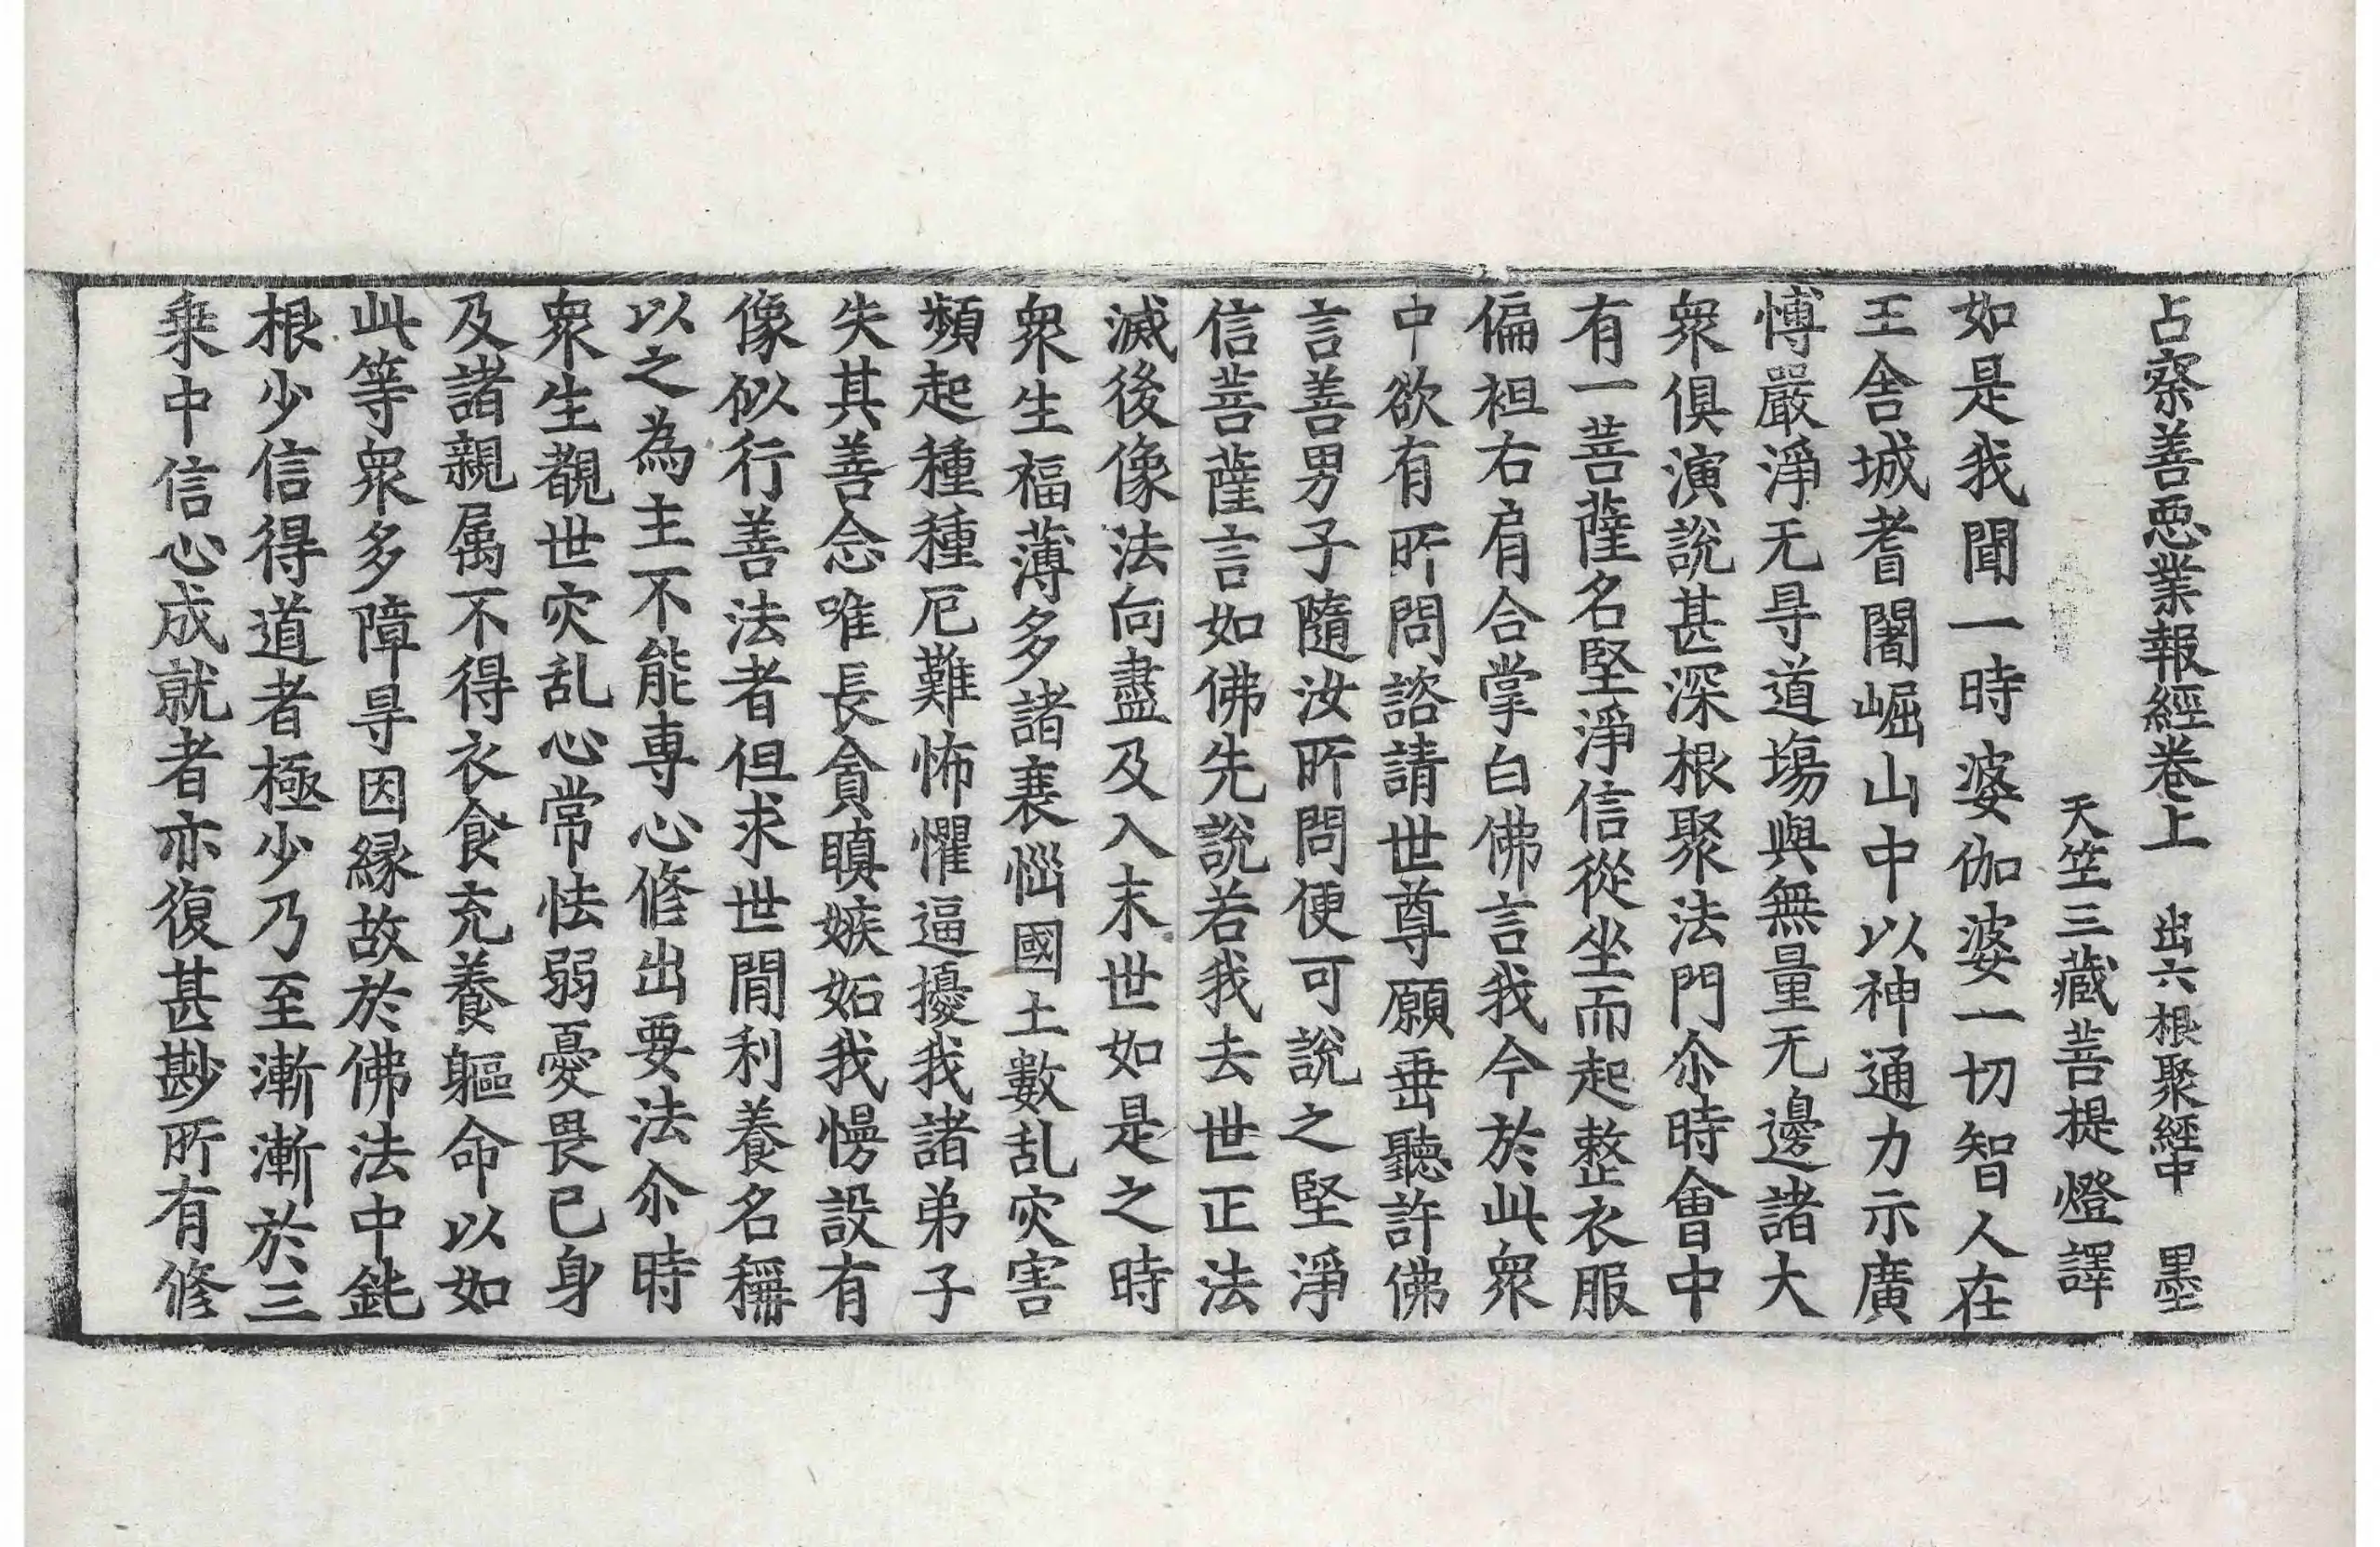 占察善惡業報經卷上 出六根聚經中 墨
天竺三藏菩提燈譯
如是我聞一時婆伽婆一切智人在
王舍城耆闍崛山中以神通力示廣
愽嚴淨无㝵道塲與無量无邊諸大
衆俱演說甚深根聚法門尒時會中
有一菩薩名堅淨信從坐而起整衣服
偏袒右肩合掌白佛言我今於此衆
中欲有所問諮請世尊願垂聽許佛
言善男子隨汝所問便可說之堅淨
信菩薩言如佛先說若我去世正法
滅後像法向盡及入末世如是之時
衆生福薄多諸衰惱國土數乱灾害
頻起種種厄難怖懼逼擾我諸弟子
失其善念唯長貪瞋嫉妬我慢設有
像似行善法者但求世間利養名稱
以之為主不能專心修出要法尒時
衆生覩世灾乱心常怯弱憂畏己身
及諸親属不得衣食充養軀命以如
此等衆多障㝵因緣故於佛法中鈍
根少信得道者極少乃至漸漸於三
乘中信心成就者亦復甚尠所有修